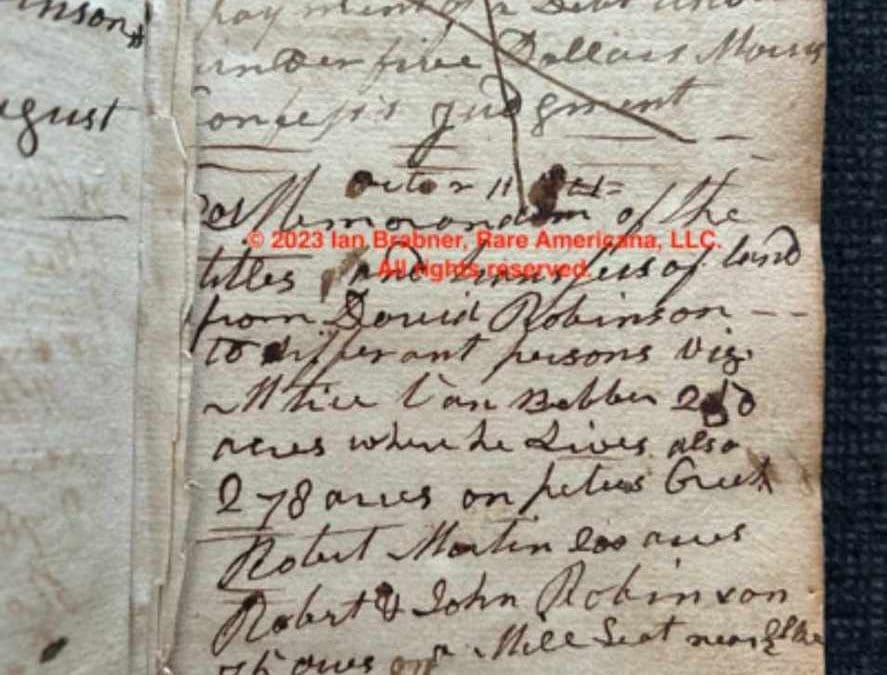 inson
ugust
payment of a Debt
under five Dollars
Confess's judgment
11
Memorandum of the
© 2023 Ian Brabner, Rare Americana, LLC.
All rights reserved.
titles and transfers of land
from David Robinson
to different persons viz.
Van Bebber
acres where he Lives also
278 acres on peters Creek
Robert Martin 200 acres
Robert & John Robinson
a Mill Seat near
acres on